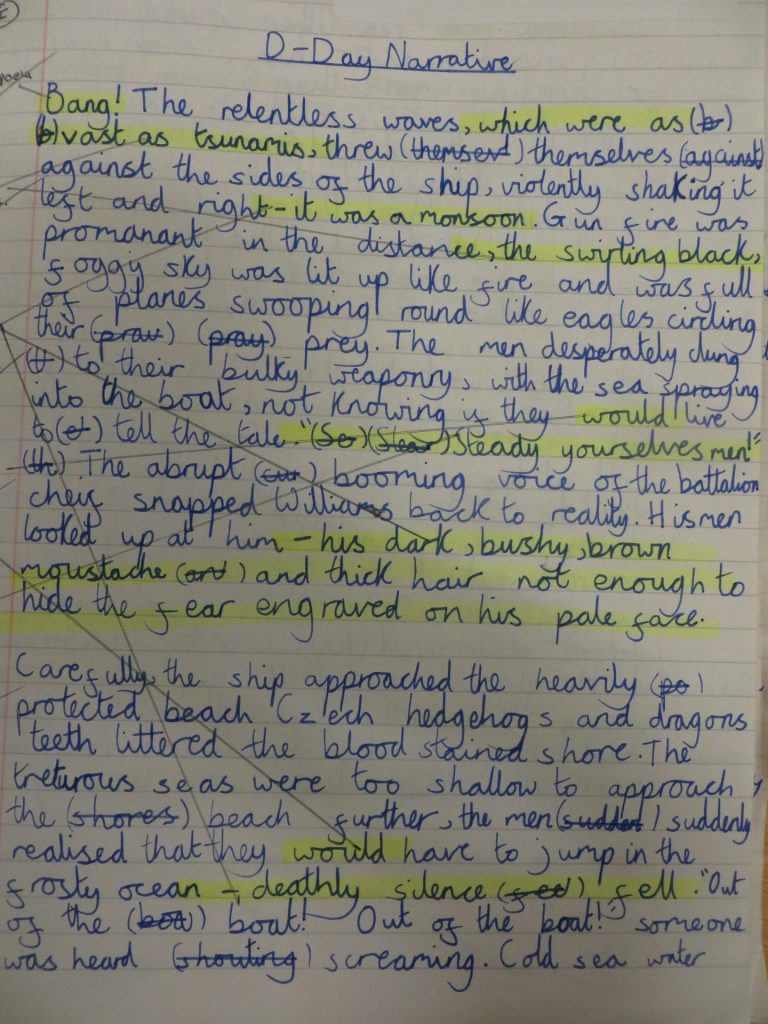 E
D-Day Narrative
Bang! The relentless waves, which were as (b)
(b) vast as tsunamis, threw (themserl) themselves (against)
against the sides of the ship, violently shaking it
left and right - it was a monsoon. Gun fire was
promanant in the distance, the swirling black,
foggy sky was lit up like fire and was full
of planes swooping round like eagles circling
their (prau) (pray) prey. The men desperately clung
(t) to their bulky weaponry, with the sea spraying
into the boat, not knowing if they would live
to (et) tell the tale. "(So) (Stear) Steady yourselves men!"
(th). The abrupt (cur) booming voice of the battalion
cheif snapped Williams back to reality. His men
looked up at him - his dark, bushy, brown
moustache (and) and thick hair not enough to
hide the fear engraved on his pale face.
Carefully, the ship approached the heavily (po)
protected beach Czech hedgehogs and dragons
teeth littered the blood stained shore. The
treturous seas were too shallow to approach
the (shores) beach further, the men (sudden) suddenly
realised that they would have to jump in the
frosty ocean - deathly silence (feel) fell. "Out
of the (boa) boat! Out of the boat!" someone
was heard (shouting) screaming. Cold sea water